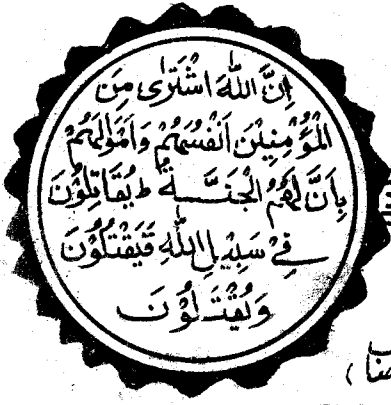 اِنَّ اللّٰهَ اشْتَرٰى مِنَ
الْمُؤْمِنِيْنَ اَنْفُسَهُمْ وَاَمْوَالَهُمْ
بِاَنَّ لَهُمُ الْجَنَّةَ ط يُقَاتِلُوْنَ
فِيْ سَبِيْلِ اللّٰهِ فَيَقْتُلُوْنَ
وَيُقْتَلُوْنَ